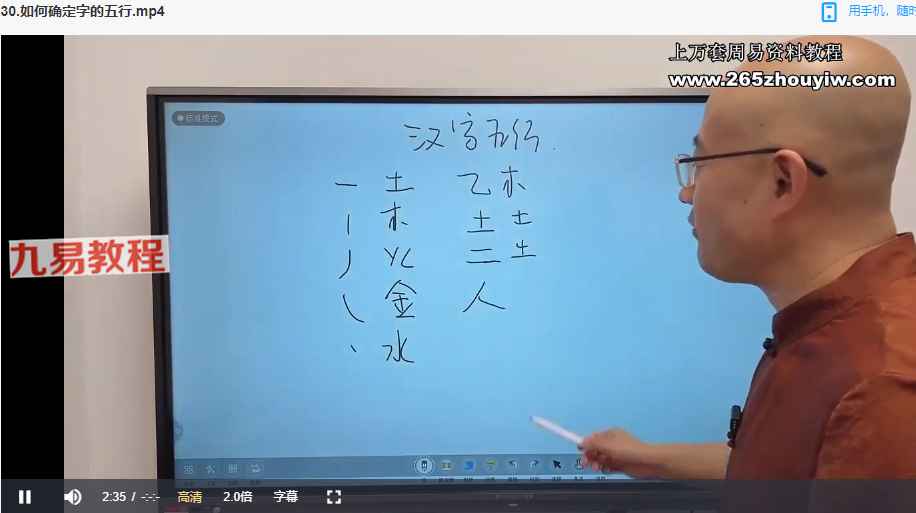 30.如何确定字的五行.mp4
用手机，随时
上万套周易资料教程
www.265zhouyiw.com
标准模式
汉字五行.
一 土 乙木
丨 木 土土
丿 火 二土
㇏ 金 人
丶 水
九易教程
2:35 / -:-:-
高清
2.0倍
字幕